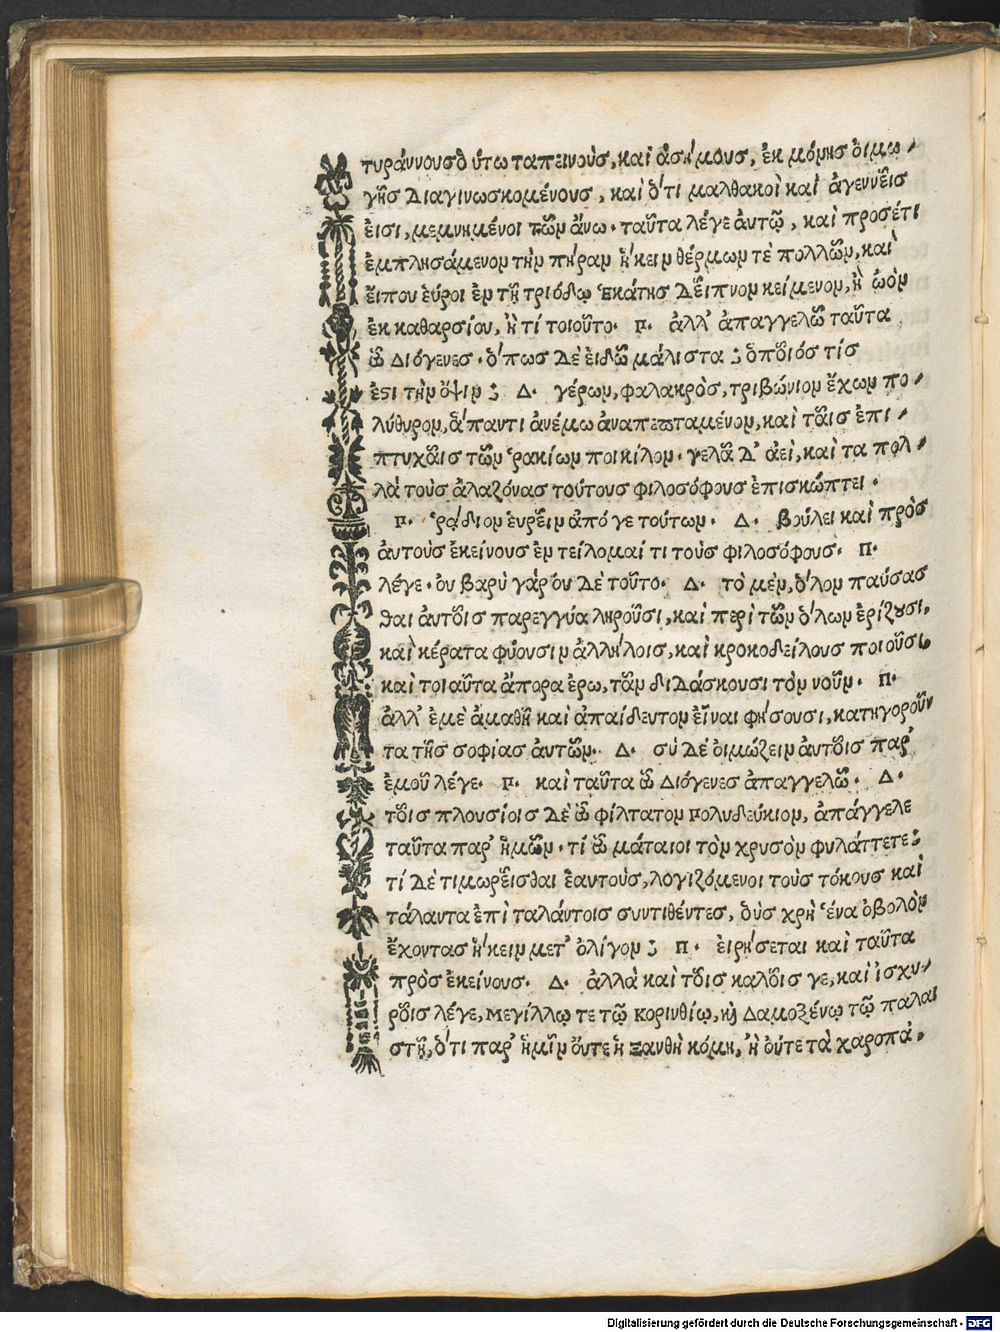 τυράννουσδ ὑτω ταπεινοὺς, καὶ ἀσήμους, ἐκ μόνης ὀιμω
γῆς Διαγινωσκομένους, καὶ ὅτι μαλθακοὶ καὶ ἀγεννεῖς
ἐισι, μεμνημένοι τῶν ἄνω. ταῦτα λέγε ἀυτῷ, καὶ προσέτι
ἐμπλησάμενον τὴν πήραν ἥκειν θέρμων τὲ πολλῶν, καὶ
ἔιπου ἑύροι ἐν τῇ τριόδῳ Ἑκάτης Δεῖπνον κείμενον, ἢ ὠὸν
ἐκ καθαρσίου, ἢ τί τοιοῦτο. Π. ἀλλ' ἀπαγγελῶ ταῦτα
ὦ Διόγενες. ὅπως Δὲ ἐιδῶ μάλιστα; ὁποῖός τίς
ἐστι τὴν ὄψιν; Δ. γέρων, φαλακρὸς, τριβώνιον ἔχων πο
λύθυρον, ἅπαντι ἀνέμω ἀναπεπταμένον, καὶ ταῖς ἐπι
πτυχαῖς τῶν ῥακίων ποικίλον. γελᾶ Δ' ἀεὶ, καὶ τα πολ
λὰ τοὺς ἀλαζόνας τούτους φιλοσόφους ἐπισκώπτει.
Π. ῥᾴδιον ἑυρεῖν ἀπό γε τούτων. Δ. βούλει καὶ πρὸς
ἀυτοὺς ἐκείνους ἐντείλομαί τι τοὺς φιλοσόφους. Π.
λέγε. ὀυ βαρὺ γὰρ ὀυ Δὲ τοῦτο. Δ. τὸ μὲν, ὅλον παύσασ
θαι ἀυτοῖς παρεγγύα ληροῦσι, καὶ περὶ τῶν ὅλων ἐρίζουσι,
καὶ κέρατα φύουσιν ἀλλήλοις, καὶ κροκοδείλους ποιοῦσι
καὶ τοιαῦτα ἄπορα ἐρω, τᾶν διδάσκουσι τὸν νοῦν. Π.
ἀλλ' ἐμὲ ἀμαθῆ καὶ ἀπαίδευτον ἐῖναι φήσουσι, κατηγοροῦν
τα τῆς σοφίας ἀυτῶν. Δ. σὺ Δὲ ὀιμώζειν ἀυτοῖς παρ'
ἐμοῦ λέγε. Π. καὶ ταῦτα ὦ Διόγενες ἀπαγγελῶ. Δ.
τοῖς πλουσίοις Δὲ ὦ φίλτατον Πολυδεύκιον, ἀπάγγελε
ταῦτα παρ' ἡμῶν. τί ὦ μάταιοι τὸν χρυσὸν φυλάττετε;
τί Δὲ τιμωρεῖσθαι ἑαυτοὺς, λογιζόμενοι τοὺς τόκους καὶ
τάλαντα ἐπὶ ταλάντοις συντιθέντες, ὁὺς χρὴ ἕνα ὀβολὸν
ἔχοντας ἥκειν μετ' ὀλίγον; Π. ἐιρήσεται καὶ ταῦτα
πρὸς ἐκείνους. Δ. ἀλλὰ καὶ τοῖς καλοῖς γε, καὶ ἰσχυ
ροῖς λέγε, Μεγίλλῳ τε τῷ Κορινθίῳ, καὶ Δαμοξένῳ τῷ παλαι
στῇ, ὅτι παρ' ἡμῖν ὄυτε ἡ Ξανθὴ κόμη, ἢ ὀύτε τὰ χαροπὰ.
Digitalisierung gefördert durch die Deutsche Forschungsgemeinschaft - DFG